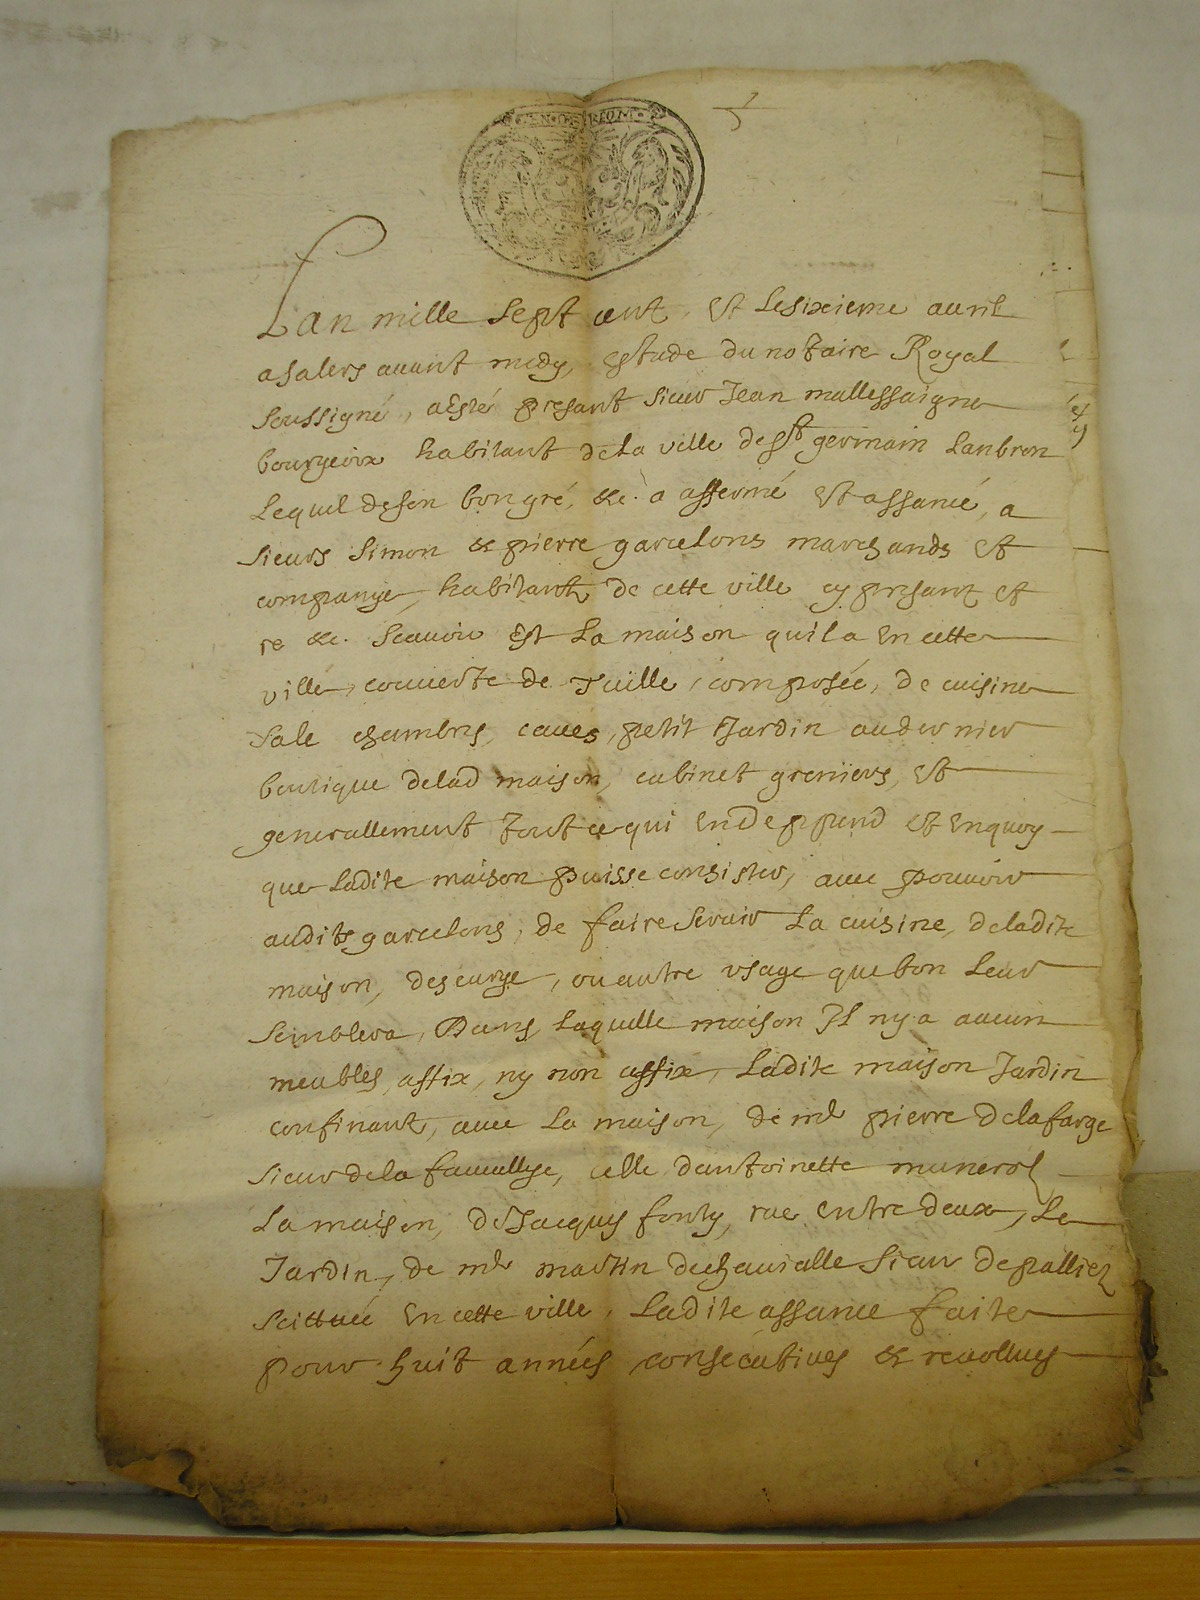 GEN. DE RIOM.
Lan mille sept cent, Et Lesixieme auril
asalers auant midy, estude dunotaire Royal
soussigné, aesté présant sieur Jean mallessaigne
bourgeoix habitant dela ville de st germain Lanbron
Lequel deson bongré, &c. a affermé Et assancé, a
sieurs simon & pierre garcelons marchands Et
compange, habitants de cette ville cy presant et
re &c. scauoir Est La maison quila En cette
ville, couuerte de Tuille, composée, de cuisine
sale chambres, caues, petit Jardin auder nier
boutique delad maison, cabinet greniers, Et
generallement Tout cequi En deppend et Enquoy
que Ladite maison puisse consister, auec pouuoir
audits garcelons, de faire seruir La cuisine, deladite
maison, descurye, ou autre vsage quebon Leur
semblera, Dans Laquelle maison Jl nya aucun
meubles affix, ny non affix, Ladite maison Jardin
confinant, auec La maison, de mr pierre delafarge
sieur dela , celle dantoinette munerol
La maison, de Jacques fonty, rue entre deux, Le
Jardin, de mr martin dechauialle sieur depalliez
scittuée En cette ville, Ladite assance faite
pour huit années consécutiues & reuollues